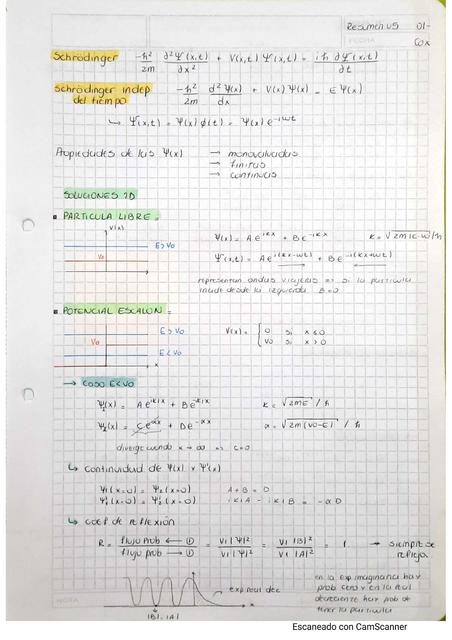 Resumen U5 01-
FECHA
Cox
Schrödinger -ħ²/2m ∂²Ψ(x,t)/∂x² + V(x,t) Ψ(x,t) = iħ ∂Ψ(x,t)/∂t
Schrödinger indep del tiempo -ħ²/2m d²Ψ(x)/dx + V(x) Ψ(x) = E Ψ(x)
↳ Ψ(x,t) = Ψ(x) ϕ(t) = Ψ(x) e^-iωt
Propiedades de las Ψ(x) → monovaluadas
→ finitas
→ continuas
SOLUCIONES 1D
▪ PARTICULA LIBRE =
V(x)
E>V0
V0
Ψ(x) = A e^ikx + B e^-ikx
Ψ(x,t) = A e^i(kx-ωt) + B e^-i(kx+ωt)
representan ondas viajeras => si la partícula
incide desde la izquierda B=0
▪ POTENCIAL ESCALON =
E>V0
V0
E<V0
x
V(x) = { 0 si x ≤ 0
V0 si x > 0
→ CASO E<V0
Ψ1(x) = A e^ik1x + B e^-ik1x k = √2mE / ħ
Ψ2(x) = C e^αx + D e^-αx α = √2m(V0-E) / ħ
diverge cuando x → ∞ => C=0
↳ continuidad de Ψ(x) y Ψ'(x)
Ψ1(x=0) = Ψ2(x=0) A+B = D
Ψ'1(x=0) = Ψ'2(x=0) ik1A - ik1B = -αD
↳ coef de reflexión
R = flujo prob ← ① / flujo prob → ① = V1|Ψ|² / V1|Ψ|² = V1|B|² / V1|A|² = 1 → siempre se
refleja
exp real dec
|B|=|A|
en la exp imaginaria hay
prob cero y en la real
decreciente hay prob de
tener la partícula
Escaneado con CamScanner